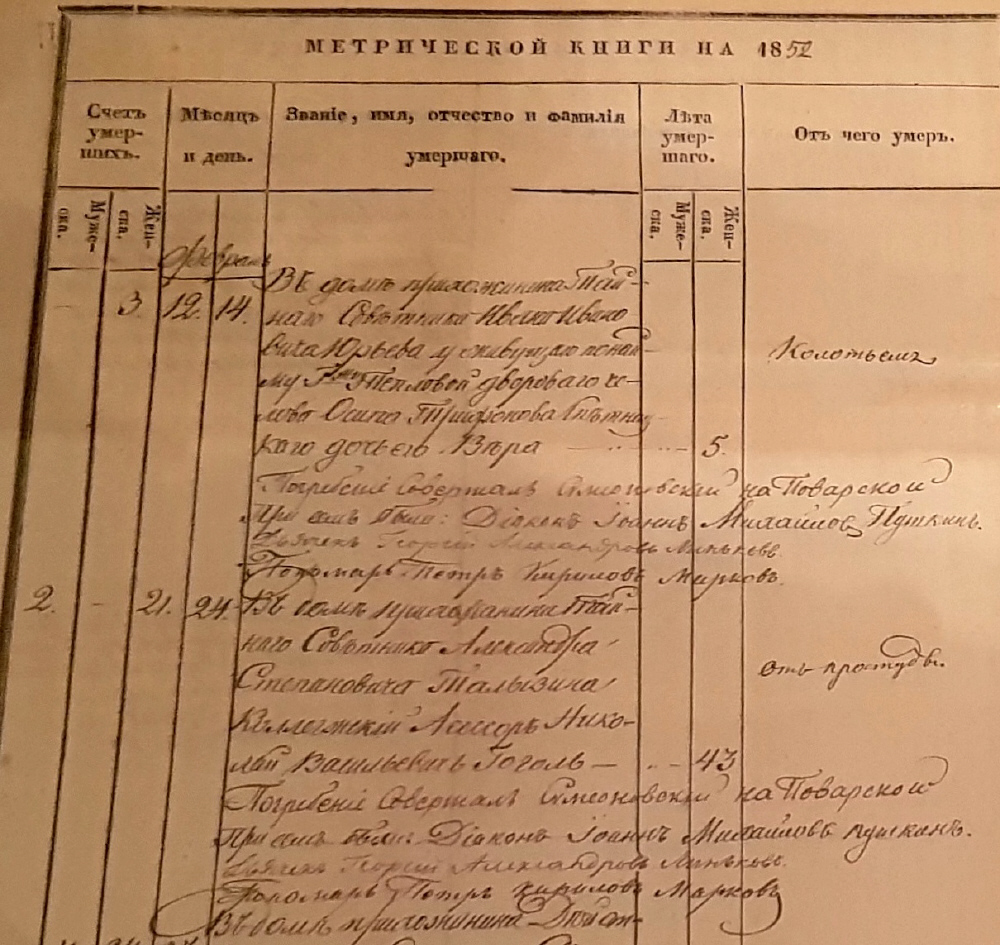 МЕТРИЧЕСКОЙ КНИГИ НА 1852
Счетъ умер- шихъ.
Мѣсяцъ и день.
Званіе, имя, отчество и фамилія умершаго.
Лѣта умер- шаго.
Отъ чего умеръ.
Муже- ска.
Жен- ска.
Муже- ска.
Жен- ска.
Февраль
Въ домѣ прихожанина Тай-
3. 12. 14. наго Совѣтника Ивана Ивано
вича Юрьева у живущаго по най-
Колотьемъ
му Тепловой двороваго че-
ловѣка Осипа Трифонова
каго дочь его Вѣра 5.
Погребеніе Совершалъ Симеоновскій на Поварской
При семъ были: Діаконъ Іоаннъ Михайловъ Пушкинъ.
Дьячекъ Георгій Александровъ Миньковъ.
Пономарь Петръ Кириловъ Марковъ.
2. - 21. 24. Въ домѣ прихожанина Тай-
наго Совѣтника Александра
Степановича Талызина
отъ простуды.
Коллежскій Асессоръ Нико-
лай Васильевичъ Гоголь — 43
Погребеніе Совершалъ Симеоновскій на Поварской
При семъ были: Діаконъ Іоаннъ Михайловъ Пушкинъ.
Дьячекъ Георгій Александровъ Миньковъ.
Пономарь Петръ Кириловъ Марковъ
Въ домѣ прихожанина